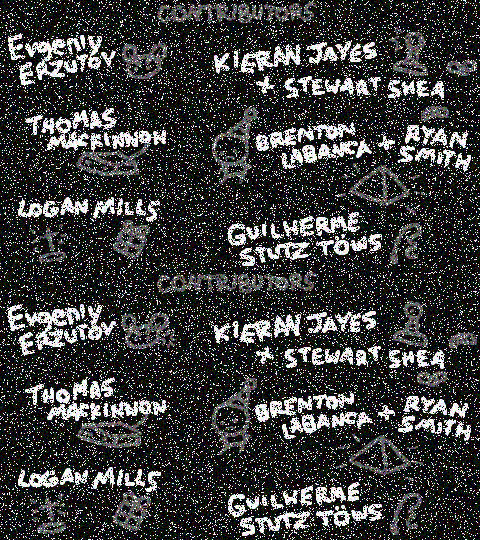 CONTRIBUTORS
Evgeniy
ERZUTOV
KIERAN JAYES
+ STEWART SHEA
THOMAS
MACKINNON
BRENTON
LABANCA + RYAN
SMITH
LOGAN MILLS
GUILHERME
STUTZ TÖWS
CONTRIBUTORS
Evgeniy
ERZUTOV
KIERAN JAYES
+ STEWART SHEA
THOMAS
MACKINNON
BRENTON
LABANCA + RYAN
SMITH
LOGAN MILLS
GUILHERME
STUTZ TÖWS